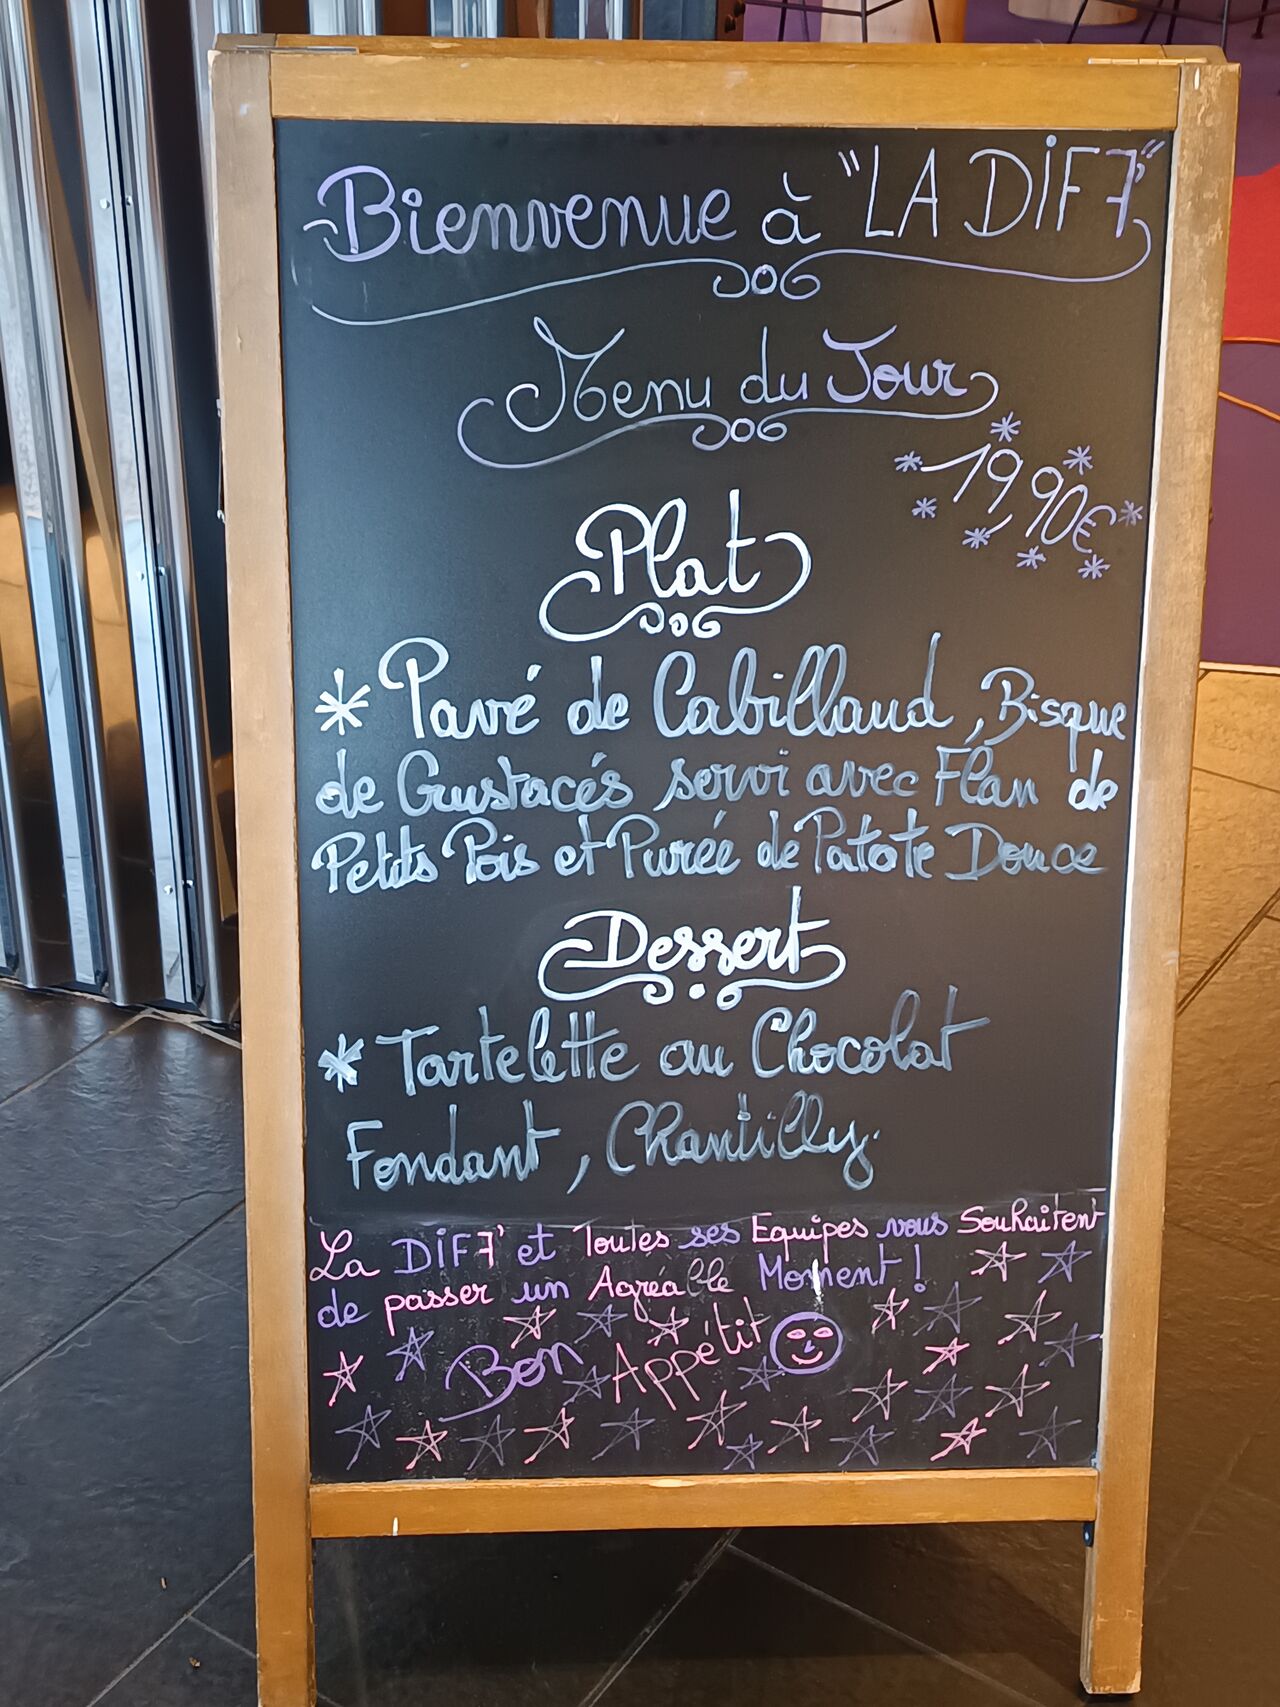 Bienvenue à "LA DIF7'"
Menu du Jour
19,90€
Plat
* Pavé de Cabillaud, Bisque
de Crustacés servi avec Flan de
Petits Pois et Purée de Patate Douce
Dessert
* Tartelette au Chocolat
Fondant, Chantilly.
La DIF7' et Toutes ses Equipes vous Souhaitent
de passer un Agréable Moment !
Bon Appétit